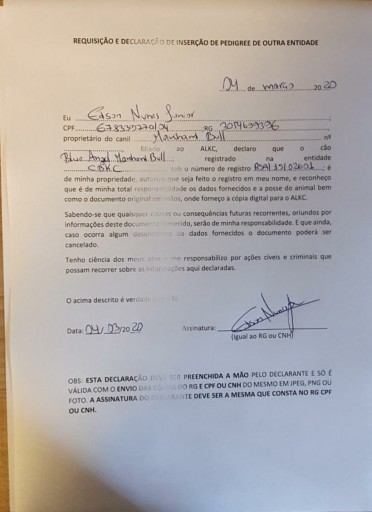 REQUISIÇÃO E DECLARAÇÃO DE INSERÇÃO DE PEDIGREE DE OUTRA ENTIDADE
04 de março 2020
Eu Edson Nunes Junior
CPF RG
proprietário do canil Manhard Bull nº
filiado ao ALKC, declaro que o cão
Blue Angel Manhard Bull registrado na entidade
CBKC sob o número de registro é
de minha propriedade, autorizo que seja feito o registro em meu nome, e reconheço
que é de minha total responsabilidade os dados fornecidos e a posse do animal bem
como o documento original em mãos, onde forneço a cópia digital para o ALKC.
Sabendo-se que quaisquer causas ou consequências futuras recorrentes, oriundos por
informações deste documento inserido, serão de minha responsabilidade. E que ainda,
caso ocorra algum dados fornecidos o documento poderá ser
cancelado.
Tenho ciência dos meus atos e me responsabilizo por ações cíveis e criminais que
possam recorrer sobre as informações aqui declaradas.
O acima descrito é verdade
Data: 04/03/2020 Assinatura:
(Igual ao RG ou CNH)
OBS: ESTA DECLARAÇÃO DEVE SER PREENCHIDA A MÃO PELO DECLARANTE E SÓ É
VÁLIDA COM O ENVIO DAS CÓPIAS DO RG E CPF OU CNH DO MESMO EM JPEG, PNG OU
FOTO. A ASSINATURA DO DECLARANTE DEVE SER A MESMA QUE CONSTA NO RG CPF
OU CNH.